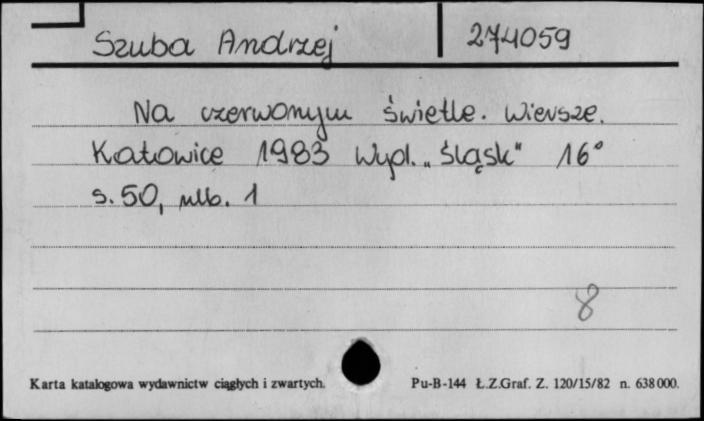 Szuba Andrzej 274059
Na czerwonym świetle. Wiersze.
Katowice 1983 Wyd. „Śląsk" 16°
s. 50, nlb. 1
8
Karta katalogowa wydawnictw ciągłych i zwartych. Pu-B-144 Ł.Z.Graf. Z. 120/15/82 n. 638000.